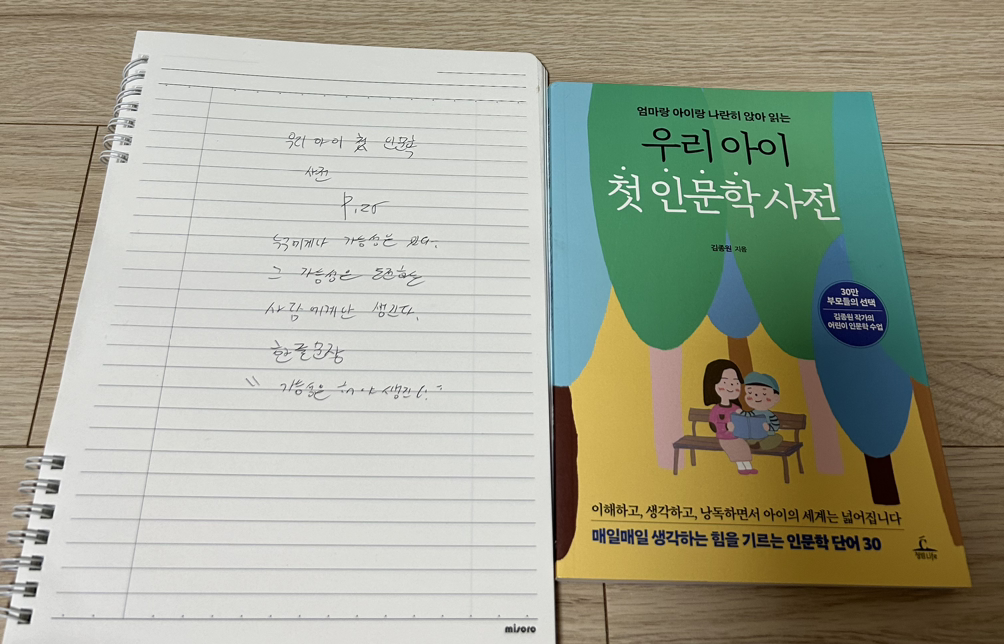 우리 아이 첫 인문학
사전
P.25
누구에게나 가능성은 있다.
그 가능성은 도전하는
사람에게만 생긴다.
한 줄 문장
" 가능성은 해야 생긴다. "
misoro
엄마랑 아이랑 나란히 앉아 읽는
우리 아이
첫 인문학 사전
김종원 지음
30만
부모들의 선택
김종원 작가의
어린이 인문학 수업
이해하고, 생각하고, 낭독하면서 아이의 세계는 넓어집니다
매일매일 생각하는 힘을 기르는 인문학 단어 30